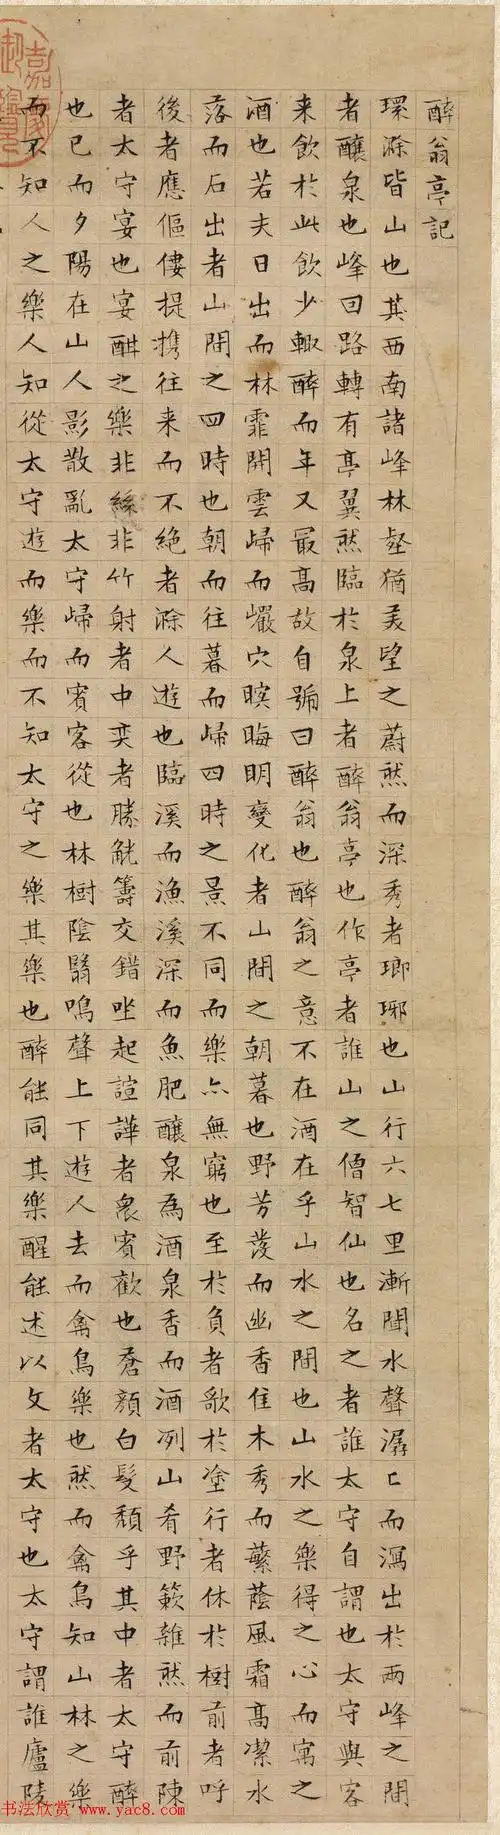 醉翁亭記
環滁皆山也其西南諸峰林壑猶美望之蔚然而深秀者瑯琊也山行六七里漸聞水聲潺〻而瀉出於兩峰之間
者釀泉也峰回路轉有亭翼然臨於泉上者醉翁亭也作亭者誰山之僧智仙也名之者誰太守自謂也太守與客
来飲於此飲少輒醉而年又最高故自號曰醉翁也醉翁之意不在酒在乎山水之間也山水之樂得之心而寓之
酒也若夫日出而林霏開雲歸而巖穴暝晦明變化者山間之朝暮也野芳發而幽香佳木秀而蘩蔭風霜高潔水
落而石出者山間之四時也朝而往暮而歸四時之景不同而樂亦無窮也至於負者歌於塗行者休於樹前者呼
後者應傴僂提携往来而不絶者滁人遊也臨溪而漁溪深而魚肥釀泉為酒泉香而酒冽山肴野簌雜然而前陳
者太守宴也宴酣之樂非絲非竹射者中奕者勝觥籌交錯坐起諠譁者衆賓歡也蒼顏白髮頹乎其中者太守醉
也已而夕陽在山人影散亂太守歸而賓客從也林樹陰翳鳴聲上下遊人去而禽鳥樂也然而禽鳥知山林之樂
而不知人之樂人知從太守遊而樂而不知太守之樂其樂也醉能同其樂醒能述以文者太守也太守謂誰廬陵
书法欣赏 www.yac8.com